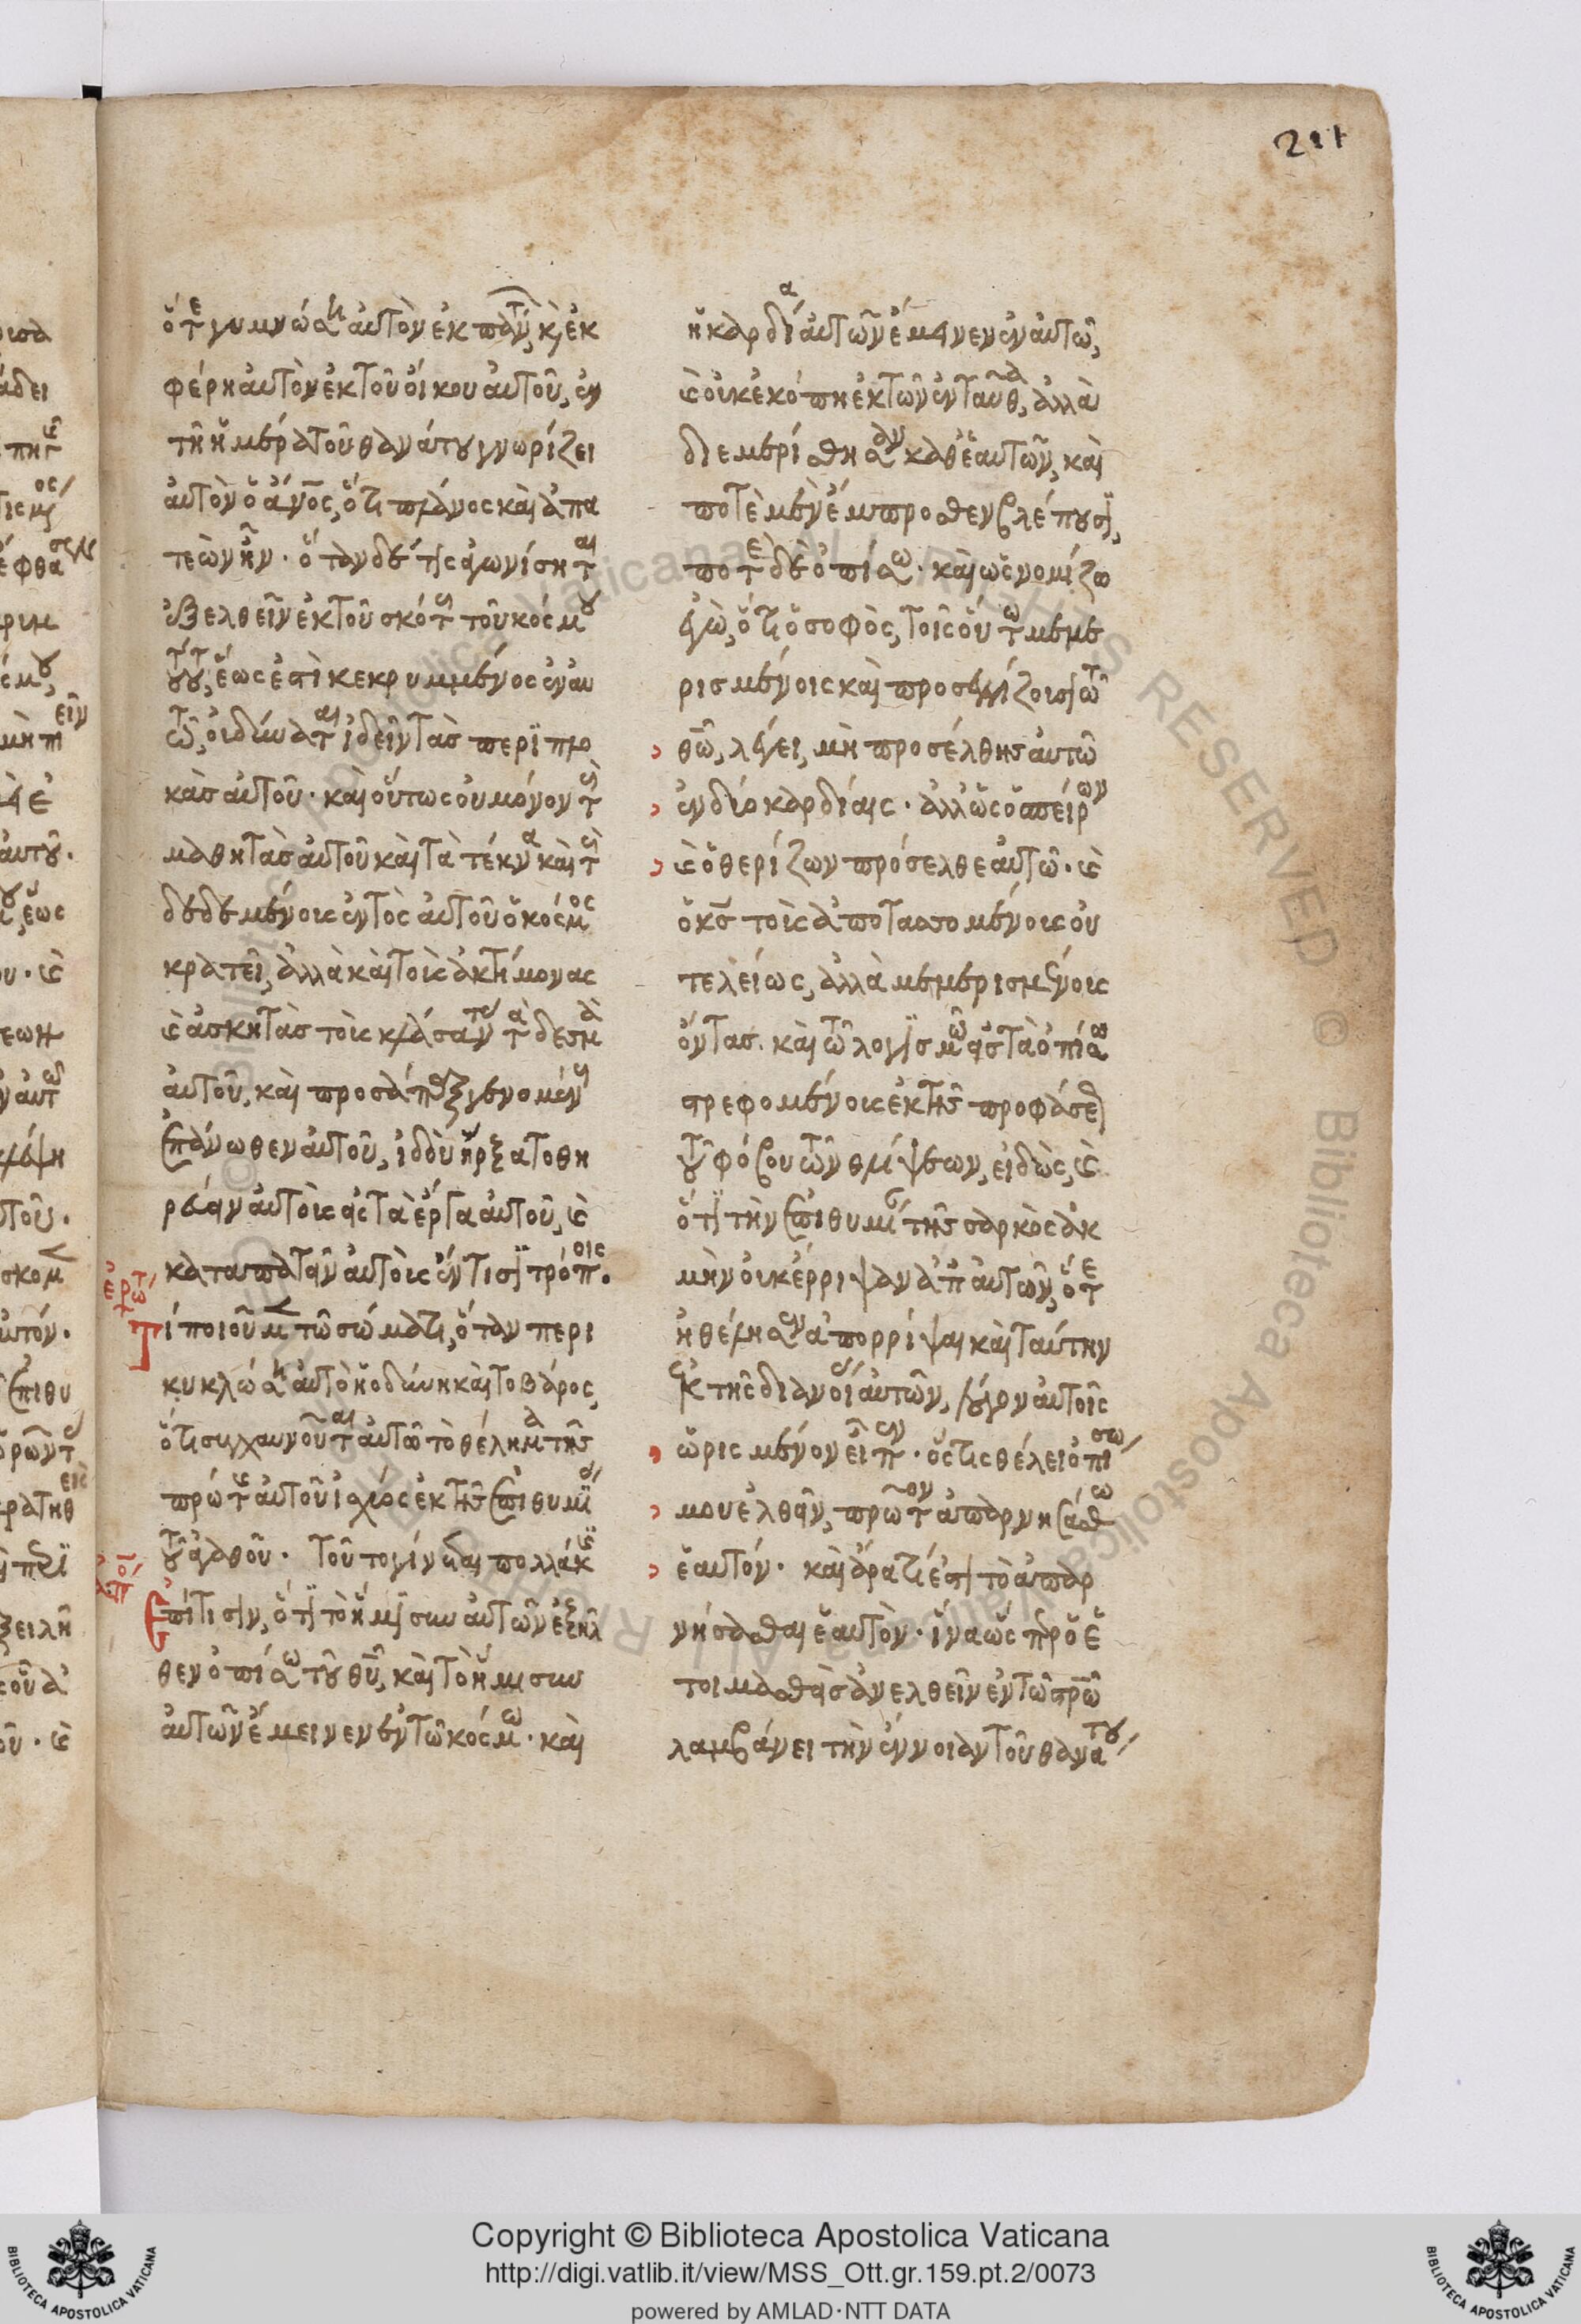 211
ὅτε γυμνώσῃ αὐτὸν ἐκ πάντων, καὶ ἐκ
φέρῃ αὐτὸν ἐκ τοῦ οἴκου αὐτοῦ, ἐν
τῇ ἡμέρα τοῦ θανάτου γνωρίζει
αὐτὸν ὁ ἄνος, ὅτι πλάνος καὶ ἀπα
τεὼν ἦν · ὅταν δέ τις ἀγωνίσηται
ἐξελθεῖν ἐκ τοῦ σκότους τοῦ κόσμου
τούτου, ἕως ἐστὶ κεκρυμμένος ἐν αυ
τῶ, οὐ δύναται ἰδεῖν τὰς περιπλο
κὰς αὐτοῦ · καὶ οὕτως οὐ μόνον τοὺς
μαθητὰς αὐτοῦ καὶ τὰ τέκνα καὶ τοὺς
δεδεμένους ἐντὸς αὐτοῦ ὁ κόσμος
κρατεῖ, ἀλλὰ καὶ τοὺς ἀκτήμονας
καὶ ἀσκητὰς τοὺς κλάσαντας τὰ δεσμὰ
αὐτοῦ, καὶ πρὸς ἅπαξ γενομένους
ἐπάνωθεν αὐτοῦ, ἰδοὺ ἤρξατο θη
ρεύειν αὐτοὺς εἰς τὰ ἔργα αὐτοῦ, καὶ
καταπατεῖν αὐτοὺς ἔν τισι τρόποις.
ἐρώτ
Τί ποιοῦμεν τῶ σώματι, ὅταν περι
κυκλώσῃ αὐτὸ ἡ ὀδύνη καὶ τὸ βάρος,
ὅτι συγχαυνοῦται αὐτῶ τὸ θέλημα τῆς
πρώτης αὐτοῦ ἰσχύος ἐκ τῆς ἐπιθυμίας
τοῦ ἀγαθοῦ · τοῦτο γίνεται πολλάκις
ἀπό
Ἐπί τισιν, ὅτι τὸ ἥμισυ αὐτῶν ἐξῆλ
θεν ὀπίσω τοῦ θυ, καὶ τὸ ἥμισυ
αὐτῶν ἔμεινεν ἐν τῶ κόσμω · καὶ
ἡ καρδία αὐτῶν ἔμεινεν ἐν αὐτῶ,
καὶ οὐκ ἐκόπη ἐκ τῶν ἐνταῦθα, ἀλλὰ
διεμερίσθησαν καθ' ἑαυτῶν, καὶ
ποτὲ μὲν ἔμπροσθεν βλέπουσι,
ποτὲ δὲ ὀπίσω · καὶ ὡς νομίζω
ἐγὼ, ὅτι ὁ σοφὸς, τοὺς οὕτω μεμε
ρισμένοις καὶ προσεγγίζουσι τῶ
θω, λέγει, μὴ προσέλθης αὐτῶ
ἐν δύο καρδίαις · ἀλλ' ὡς ὁ σπείρων
καὶ ὁ θερίζων πρόσελθε αὐτῶ · καὶ
ὁ κς τοὺς ἀποτασσομένους οὐ
τελείως, ἀλλὰ μεμερισμένους
ὄντας · καὶ τῶ λογισμῶ εἰς τὰ ὀπίσω
στρεφομένους ἐκ τῆς προφάσεως
τοῦ φόβου τῶν θλίψεων, εἰδὼς, καὶ
ὅτι τὴν ἐπιθυμίαν τῆς σαρκὸς ἀκ
μὴν οὐκ ἔρριψαν ἀπ' αὐτῶν, ὅτε
ἠθέλησεν ἀπορρίψαι καὶ ταύτην
ἐκ τῆς διανοίας αὐτῶν, λόγον αὐτοῖς
ὡρισμένον εἶπεν · ὅστις θέλει ὀπίσω
μου ἐλθεῖν, πρῶτον ἀπαρνησάσθω
ἑαυτόν · καὶ ἆρα τί ἐστι τὸ ἀπαρ
νήσασθαι ἑαυτὸν · ἵνα ὡς περ ὁ ἑ
τοιμασθεὶς ἀνελθεῖν ἐν τῶ στρῶ
λαμβάνει τὴν ἔννοιαν τοῦ θανάτου
Copyright © Biblioteca Apostolica Vaticana
http://digi.vatlib.it/view/MSS_Ott.gr.159.pt.2/0073
powered by AMLAD·NTT DATA
BIBLIOTECA APOSTOLICA VATICANA
BIBLIOTECA APOSTOLICA VATICANA